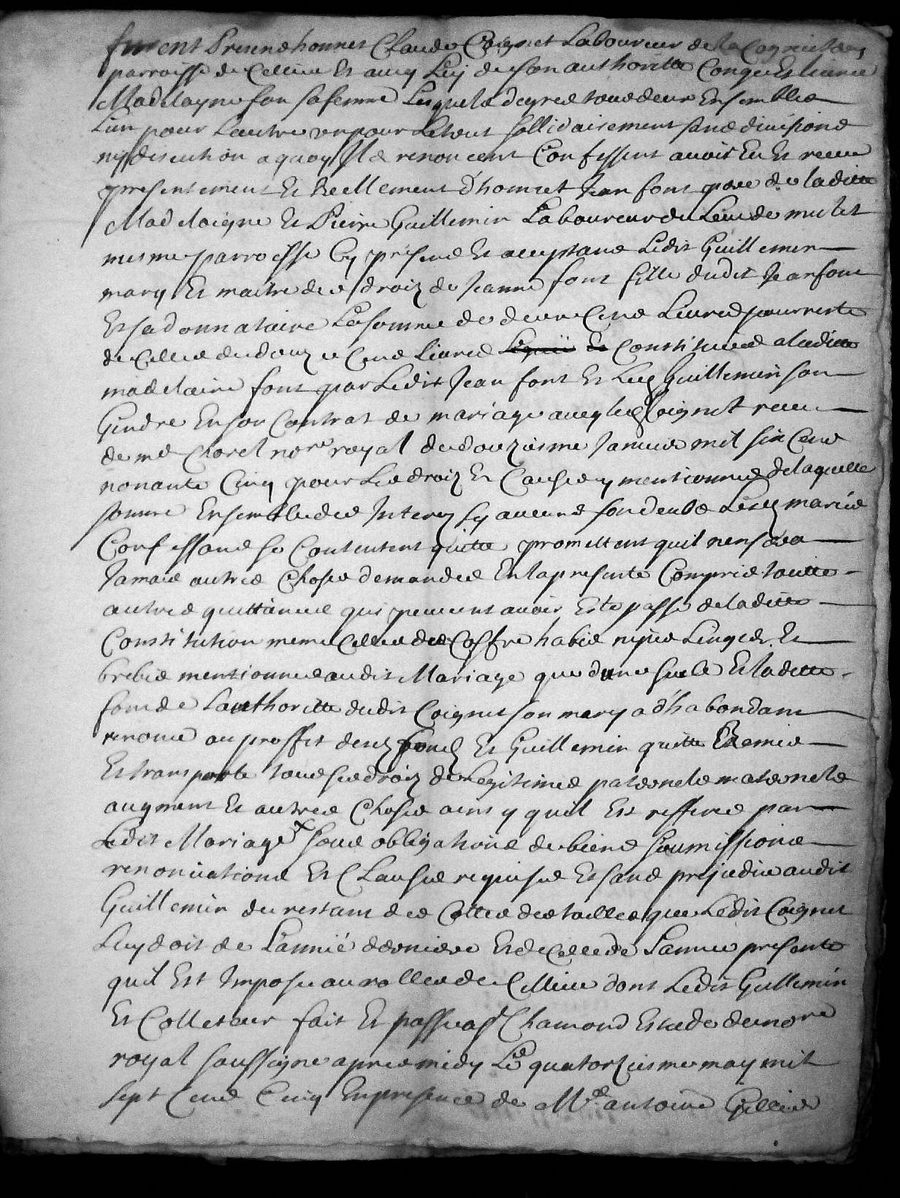 furent presens honnet Claude Coignet Laboureur de la
parroisse de Cellieu Et avecq Luy de son authoritte Congé Et licence
Madelayne fon sa femme Lesquels de gred tous deux Ensemble
L'un pour L'autre un pour Le tout sollidairement sans divisions
ny discution a quoy Ils renoncent Confessent avoir Eu Et receu
presentement Et Reellement d'honnet Jean font pere de laditte
Madelaigne Et Pierre Guillemin Laboureur du Lieu de mulet
mesme parroisse Cy present Et acceptans Ledit Guillemin
mary Et maitre des droiz de Jeanne font fille dudit Jean font
Et sa donnataire La somme de deux Cens Livres pour reste
de Celles de douze Cens Livres Constituées a laditte
madelaine font par Ledit Jean font Et Led Guillemin son
Gendre En son Contrat de mariage avecq led Coignet receu
de me Chorel nore royal du douziesme Janvie mil six Cens
nonante Cinq pour Les droiz Et Causes y mentionnes de laquelle
somme Ensemble des Interez sy aucuns sont deubs Lesd mariés
Confessans se Contentent quitte promettent quil nen sera
Jamais autres Chose demandes En la presente Compris toutte
autres quittances qui peuvent avoir Esté passé de laditte
Constitution meme Celles des Coffre habis nipes Linges Et
brebis mentionnes audit Mariage que d'une seule Et laditte
fon de L'authoritte dudit Coignet son mary a d'habondant
renoncé au proffit desd font Et Guillemin quitte Et remis
Et transporte tous ses droiz de Legitimes paternels maternels
augment Et autres Choses ainsy quil Est refferé par
Ledit Mariage x sous obligations de biens soumissions
renonciations Et Clauses requises Et sans prejudice audit
Guillemin du restant des Cottes des tailles que Ledit Coignet
Luy doit de L'année derniere Et de Celle de L'année presente
quil Est Imposé au rolle de Cellieu dont Ledit Guillemin
Et Colleteur fait Et passé a St Chamond Estude de nore
royal soussigne apres midy Le quatorziesme may mil
sept Cens Cinq En presence de Me antoine